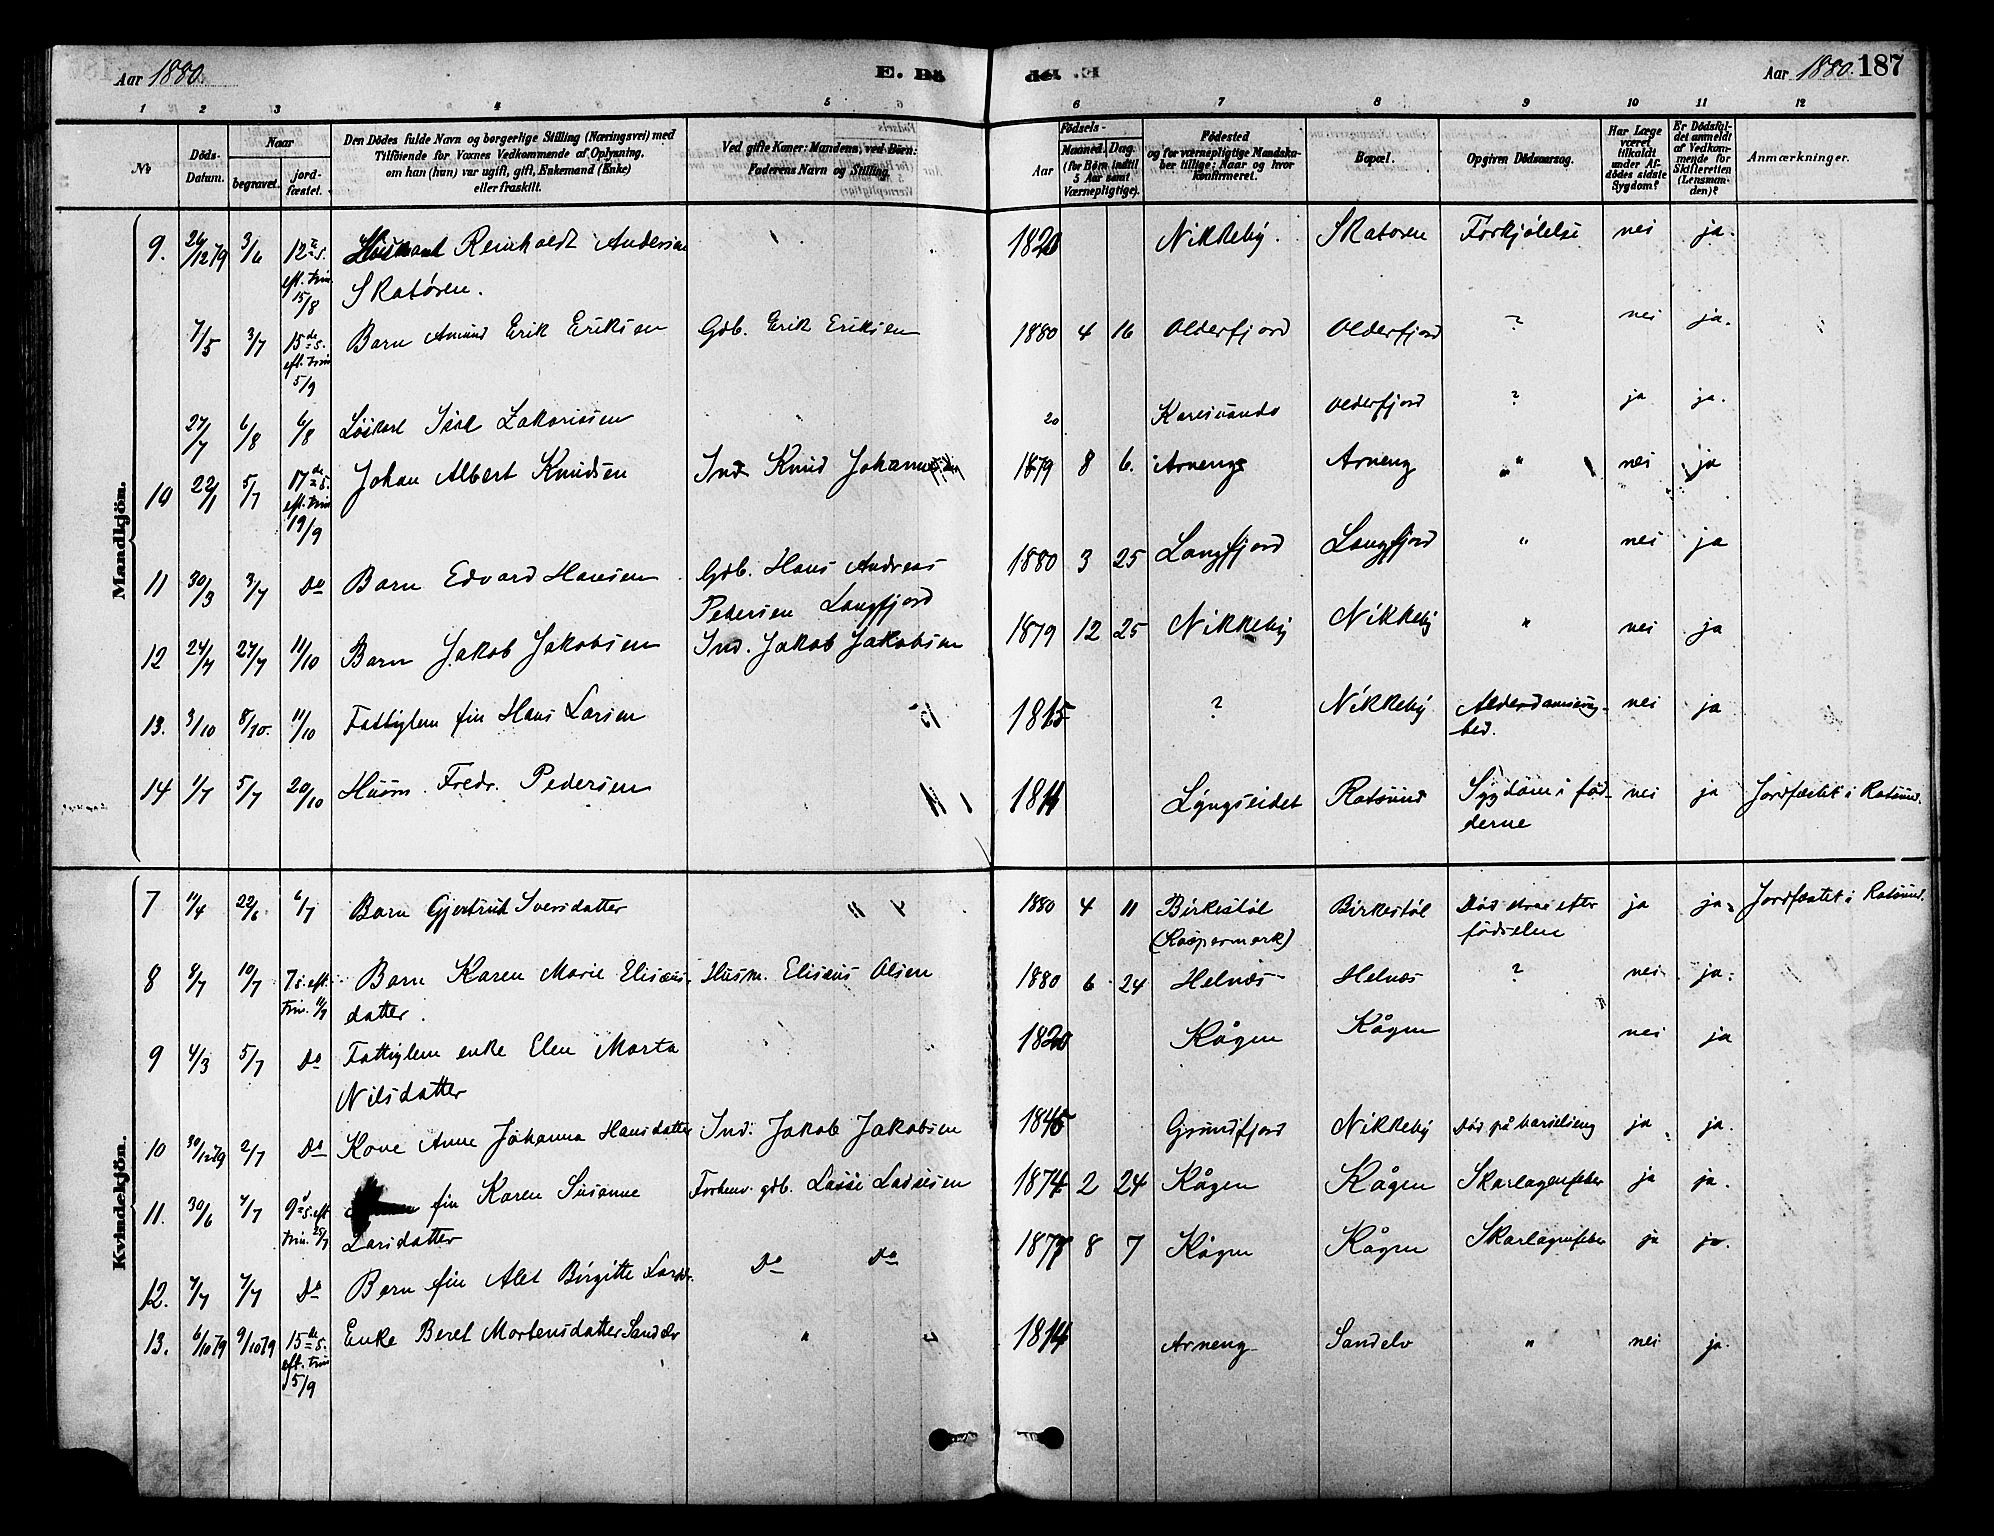 Aar 1880.
E. Dö
de. E.
Aar 1880. 187
1 2 3 4 5 6 7 8 9 10 11 12
No
Döds-Datum.
Naar
begravet.
jord-fæstet.
Den Dödes fulde Navn og borgerlige Stilling (Næringsvei) med
Tilföiende for Voxnes Vedkommende af Oplysning,
om han (hun) var ugift, gift, Enkemand (Enke)
eller fraskilt.
Ved gifte Koner: Mandens, ved Börn:
Faderens Navn og Stilling.
Födsels-
Aar
Maaned. Dag.
(for Börn indtil
5 Aar samt
Værnepligtige).
Födested
og for værnepligtige Mandska-
ber tillige: Naar og hvor
konfirmeret.
Bopæl.
Opgiven Dödsaarsag.
Har Læge
været
tilkaldt
under Af-
dödes sidste
Sygdom?
Er Dödsfal-
det anmeldt
af Vedkom-
mende for
Skifteretten
(Lensman-
den)?
Anmærkninger.
Mandkjön.
9. 26/12 79 3/6 12te s. eft. trin 15/8 Reinholdt Andersen 1820 Nikkeby. Skatøren Forkjølelse nei ja.
Skatøren.
7/5 3/7 15de s. eft. trin 5/9 Barn Amund Erik Eriksen Gdb. Erik Eriksen 1880 4 16 Olderfjord Olderfjord ? nei ja.
27/7 6/8 6/8 Løskarl Isak Zakariasen 20 Karesuando Olderfjord ? ja ja.
10 22/1 5/7 17de s. eft. trin 19/9 Johan Albert Knudsen Ind. Knud Johannesen 1879 8 6. Arneng Arneng " nei ja
11 30/3 3/7 Do Barn Edvard Hansen Gdb. Hans Andreas 1880 3 25 Langfjord Langfjord " nei ja
Pedersen Langfjord
12 24/7 27/7 11/10 Barn Jakob Jakobsen Ind. Jakob Jakobsen 1879 12 25 Nikkeby Nikkeby " nei ja
13. 3/10 8/10. 11/10 Fattiglem fin Hans Larsen 1815 ? Nikkeby Alderdomssvag-
hed. nei ja
14 1/7 5/7 20/10 Husm. Fredr. Pedersen 1811 Lyngseidet Rotsund Sygdom i fød-
derne nei ja Jordfæstet i Rotsund.
Kvindekjön.
7 11/4 22/6 6/7 Barn Gjertrud Iversdatter " " 1880 4 11 Birkestøl Birkestøl Død strax efter ja ja. Jordfæstet i Rotsund.
(Kaspermark) fødselen
8 8/7 10/7 7 s. eft. trin. 11/7 Barn Karen Marie Elisæus- Husm. Elisæus Olsen 1880 6 24 Helnæs Helnæs ? nei ja.
datter.
9 4/3 5/7 Do Fattiglem enke Elen Marta 1820 Kågen Kågen nei ja
Nilsdatter
10 30/12 79 2/7 Do Kone Anne Johanna Hansdatter Ind. Jakob Jakobsen 1845 Grundfjord Nikkeby Død på barselseng ja ja.
11. 30/6 7/7 9d s. eft. trin. 25/7 fin Karen Susanne Forhenv. gdb. Lasse Ladsesen 1874 2 24 Kågen Kågen Skarlagensfeber ja ja.
Larsdatter
12. 7/7 7/7 Do Barn fin Alet Birgitte Larsdr. Do Do 1877 8 7 Kågen Kågen Skarlagensfeber ja ja.
13. 6/10 79 9/10 79 15de s. eft. trin 5/9 Enke Beret Mortensdatter Sandelv " " 1814 Arneng Sandelv " nei ja.